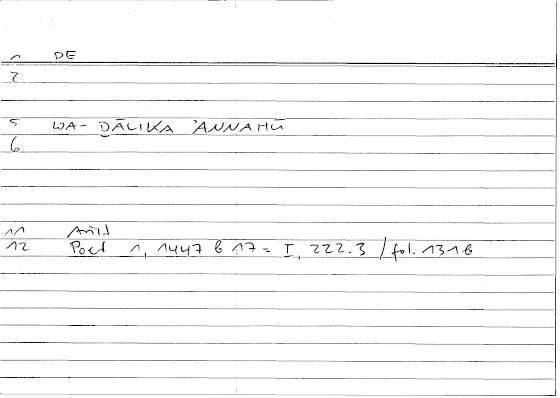 1 DE
2
5 WA- ḎĀLIKA ʾANNAHŪ
6
11 Arist
12 Poet 1, 1447 b 17 = I, 222.3 / fol. 131b